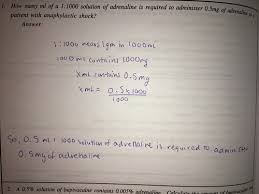 1. How many ml of a 1:1000 solution of adrenaline is required to administer 0.5mg of adrenaline to a
patient with anaphylactic shock?
Answer
1:1000 means 1gm in 1000ml
1000 ml contains 1000mg
x ml contains 0.5mg
x ml = 0.5 x 1000
1000
So, 0.5 ml 1:1000 solution of adrenaline is required to administer
0.5mg of adrenaline
2. A 0.5% solution of bupivacaine contains 0.0005% adrenaline. Calculate the